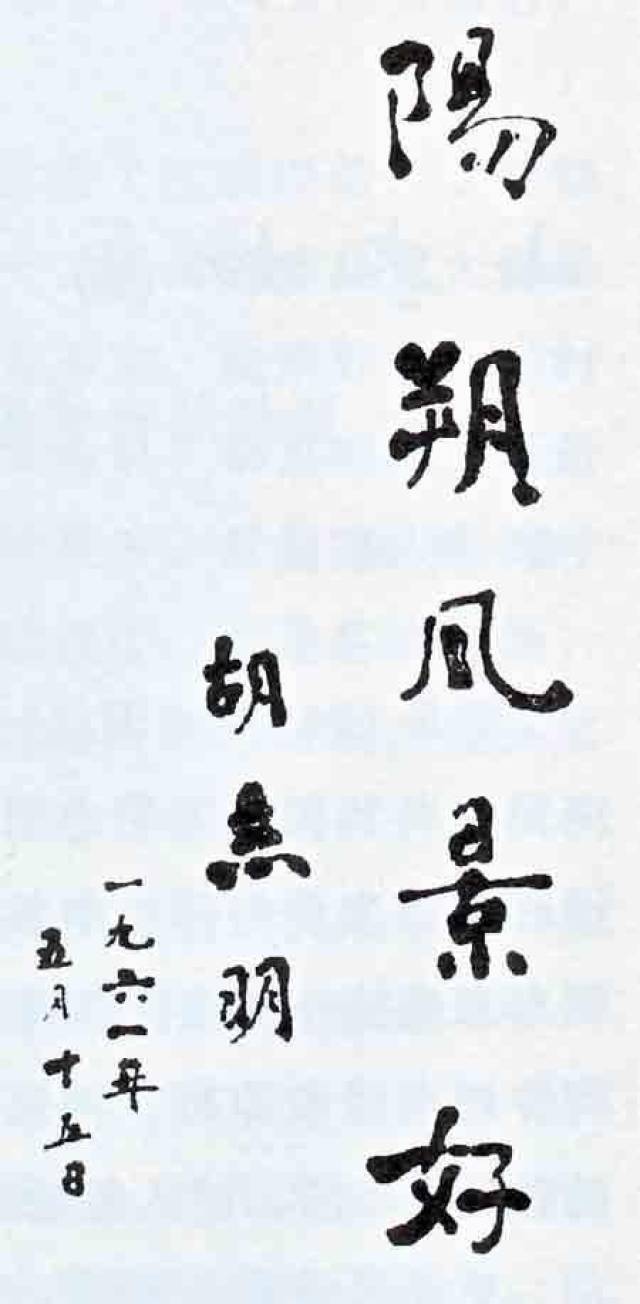 陽朔風景好
胡志明
一九六一年
五月十五日